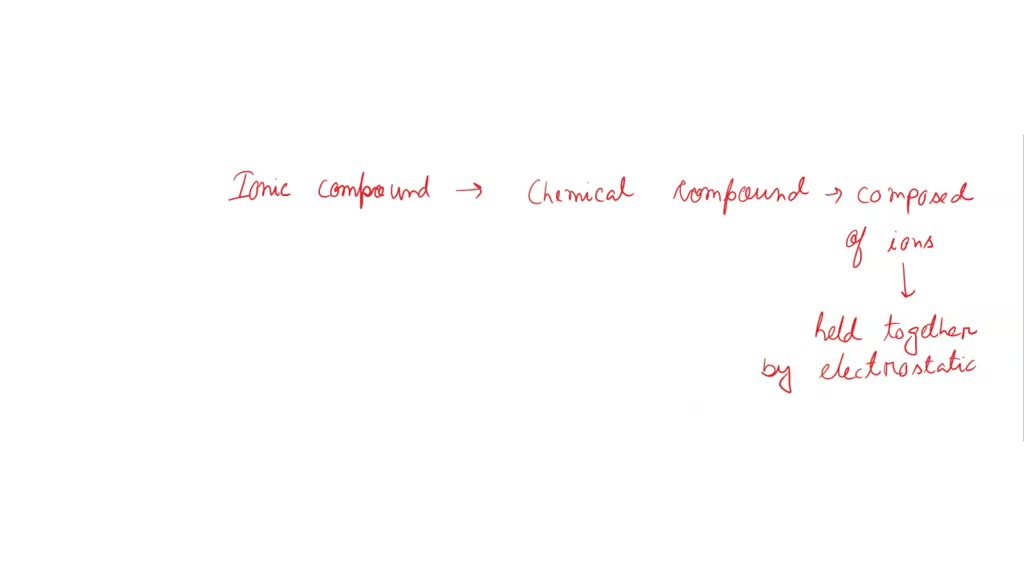 Ionic compound → Chemical compound → composed
of ions
↓
held together
by electrostatic